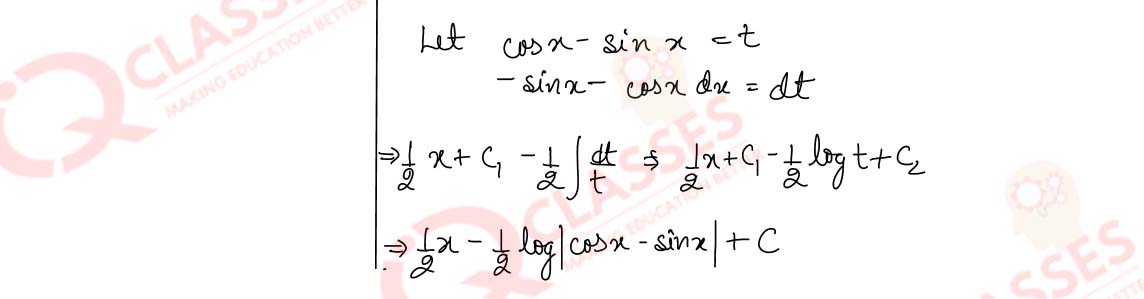 Let cosx - sin x = t
- sinx - cosx dx = dt
⇒ 1/2 x + C₁ - 1/2 ∫ dt/t ⇒ 1/2 x + C₁ - 1/2 log t + C₂
⇒ 1/2 x - 1/2 log |cosx - sinx| + C
CLASSES
MAKING EDUCATION BETTER
CLASSES
MAKING EDUCATION BETTER